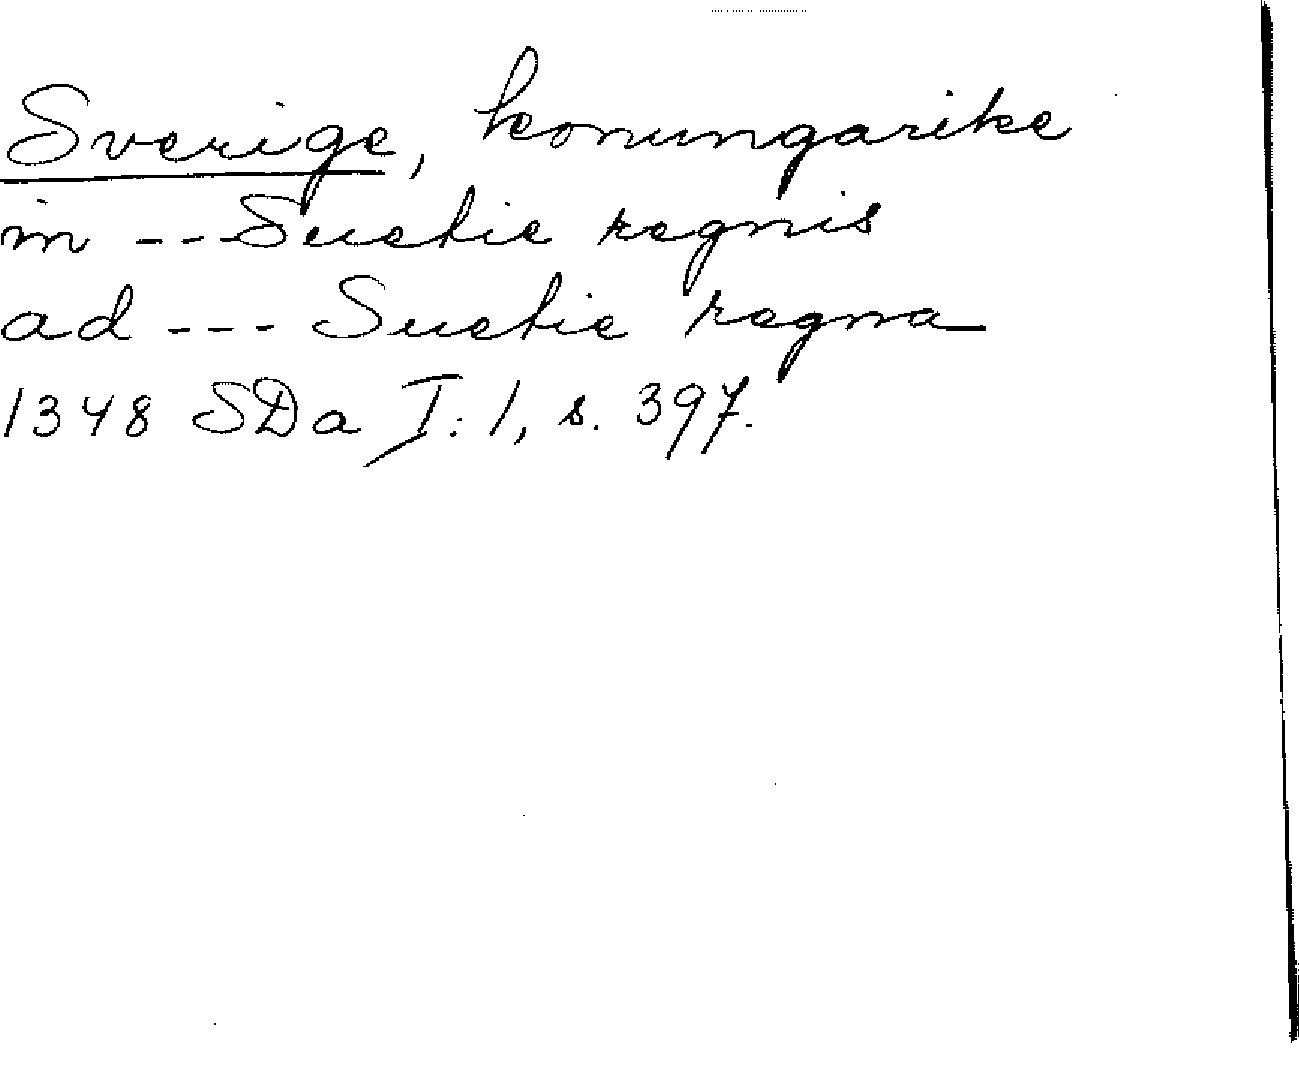 Sverige, konungarike
in --- Suetie regnis
ad --- Suetie regna
1348 SDa I:1, s. 397.